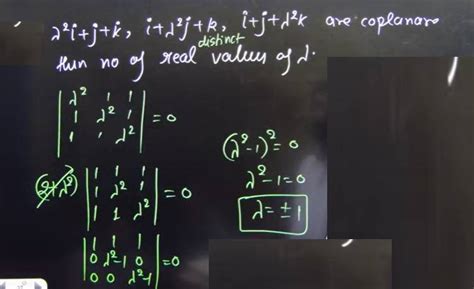 λ²i+j+k, i+λ²j+k, i+j+λ²k are coplanar
then no of real distinct values of λ.
| λ² 1 1 |
| 1 λ² 1 | = 0
| 1 1 λ² |
(2+λ²) | 1 1 1 |
| 1 λ² 1 | = 0
| 1 1 λ² |
| 1 1 1 |
| 0 λ²-1 0 | = 0
| 0 0 λ²-1 |
(λ²-1)² = 0
λ²-1=0
λ=±1